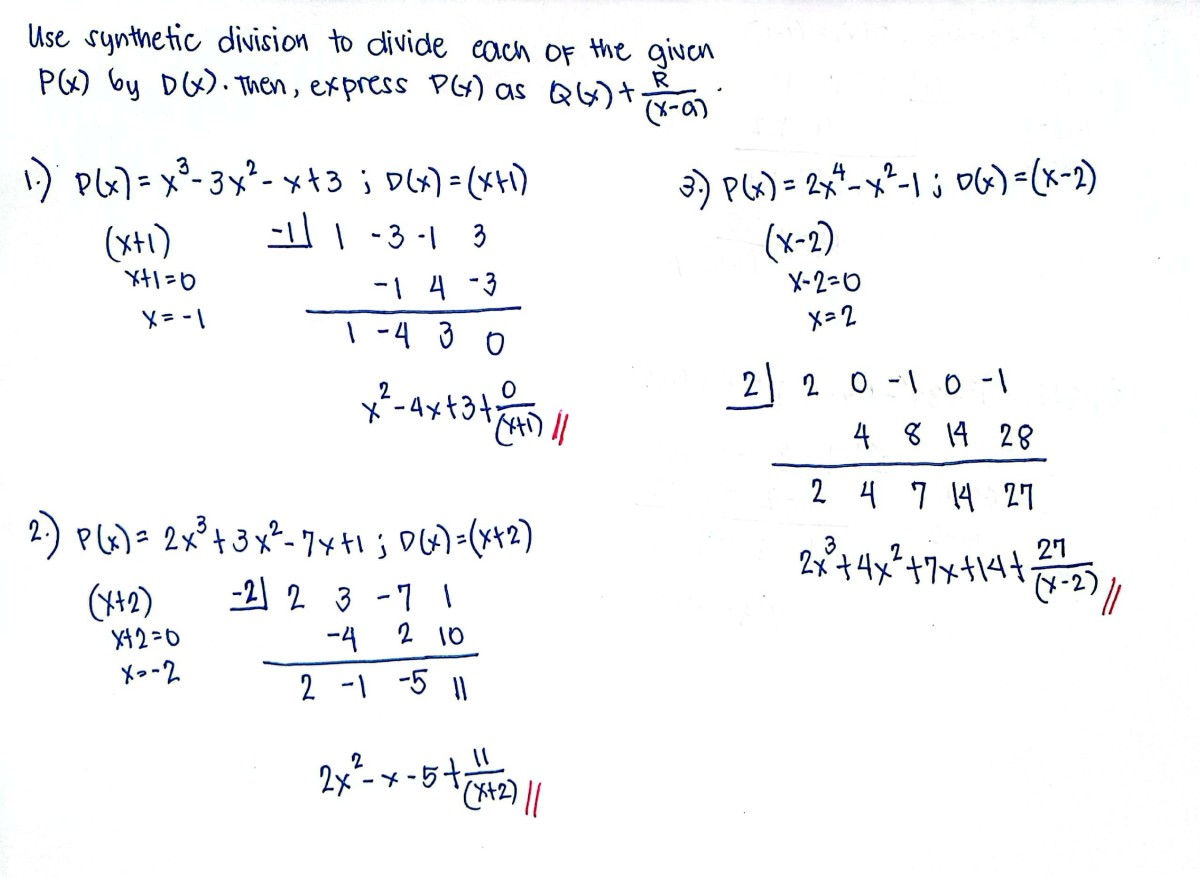 Use synthetic division to divide each of the given
P(x) by D(x). Then, express P(x) as Q(x) + R/(x-a).
1.) P(x) = x³ - 3x² - x + 3 ; D(x) = (x+1)
(x+1)
x+1=0
x = -1
-1| 1 -3 -1 3
-1 4 -3
1 -4 3 0
x² - 4x + 3 + 0/(x+1) //
2.) P(x) = 2x³ + 3x² - 7x + 1 ; D(x) = (x+2)
(x+2)
x+2=0
x=-2
-2| 2 3 -7 1
-4 2 10
2 -1 -5 11
2x² - x - 5 + 11/(x+2) //
3.) P(x) = 2x⁴ - x² - 1 ; D(x) = (x-2)
(x-2)
x-2=0
x=2
2| 2 0 -1 0 -1
4 8 14 28
2 4 7 14 27
2x³ + 4x² + 7x + 14 + 27/(x-2) //